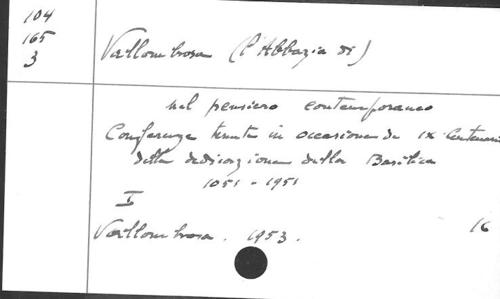 104
165
3
Vallombrosa (l'Abbazia di)
nel pensiero contemporaneo
Conferenze tenute in occasione da IX Centenario
della dedicazione della Basilica
1051-1951
I
Vallombrosa. 1953. 16